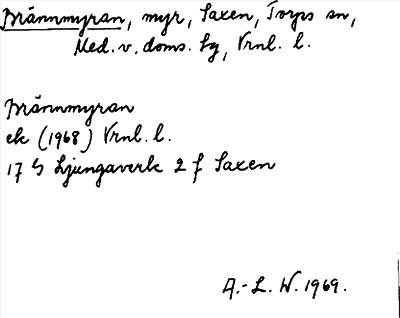 Brännmyran, myr, Saxen, Torps sn,
Med. v. doms. hg, Vrnl. l.
Brännmyran
ek (1968) Vrnl. l.
17 G Ljungaverk 2 f Saxen
A.-L. W. 1969.